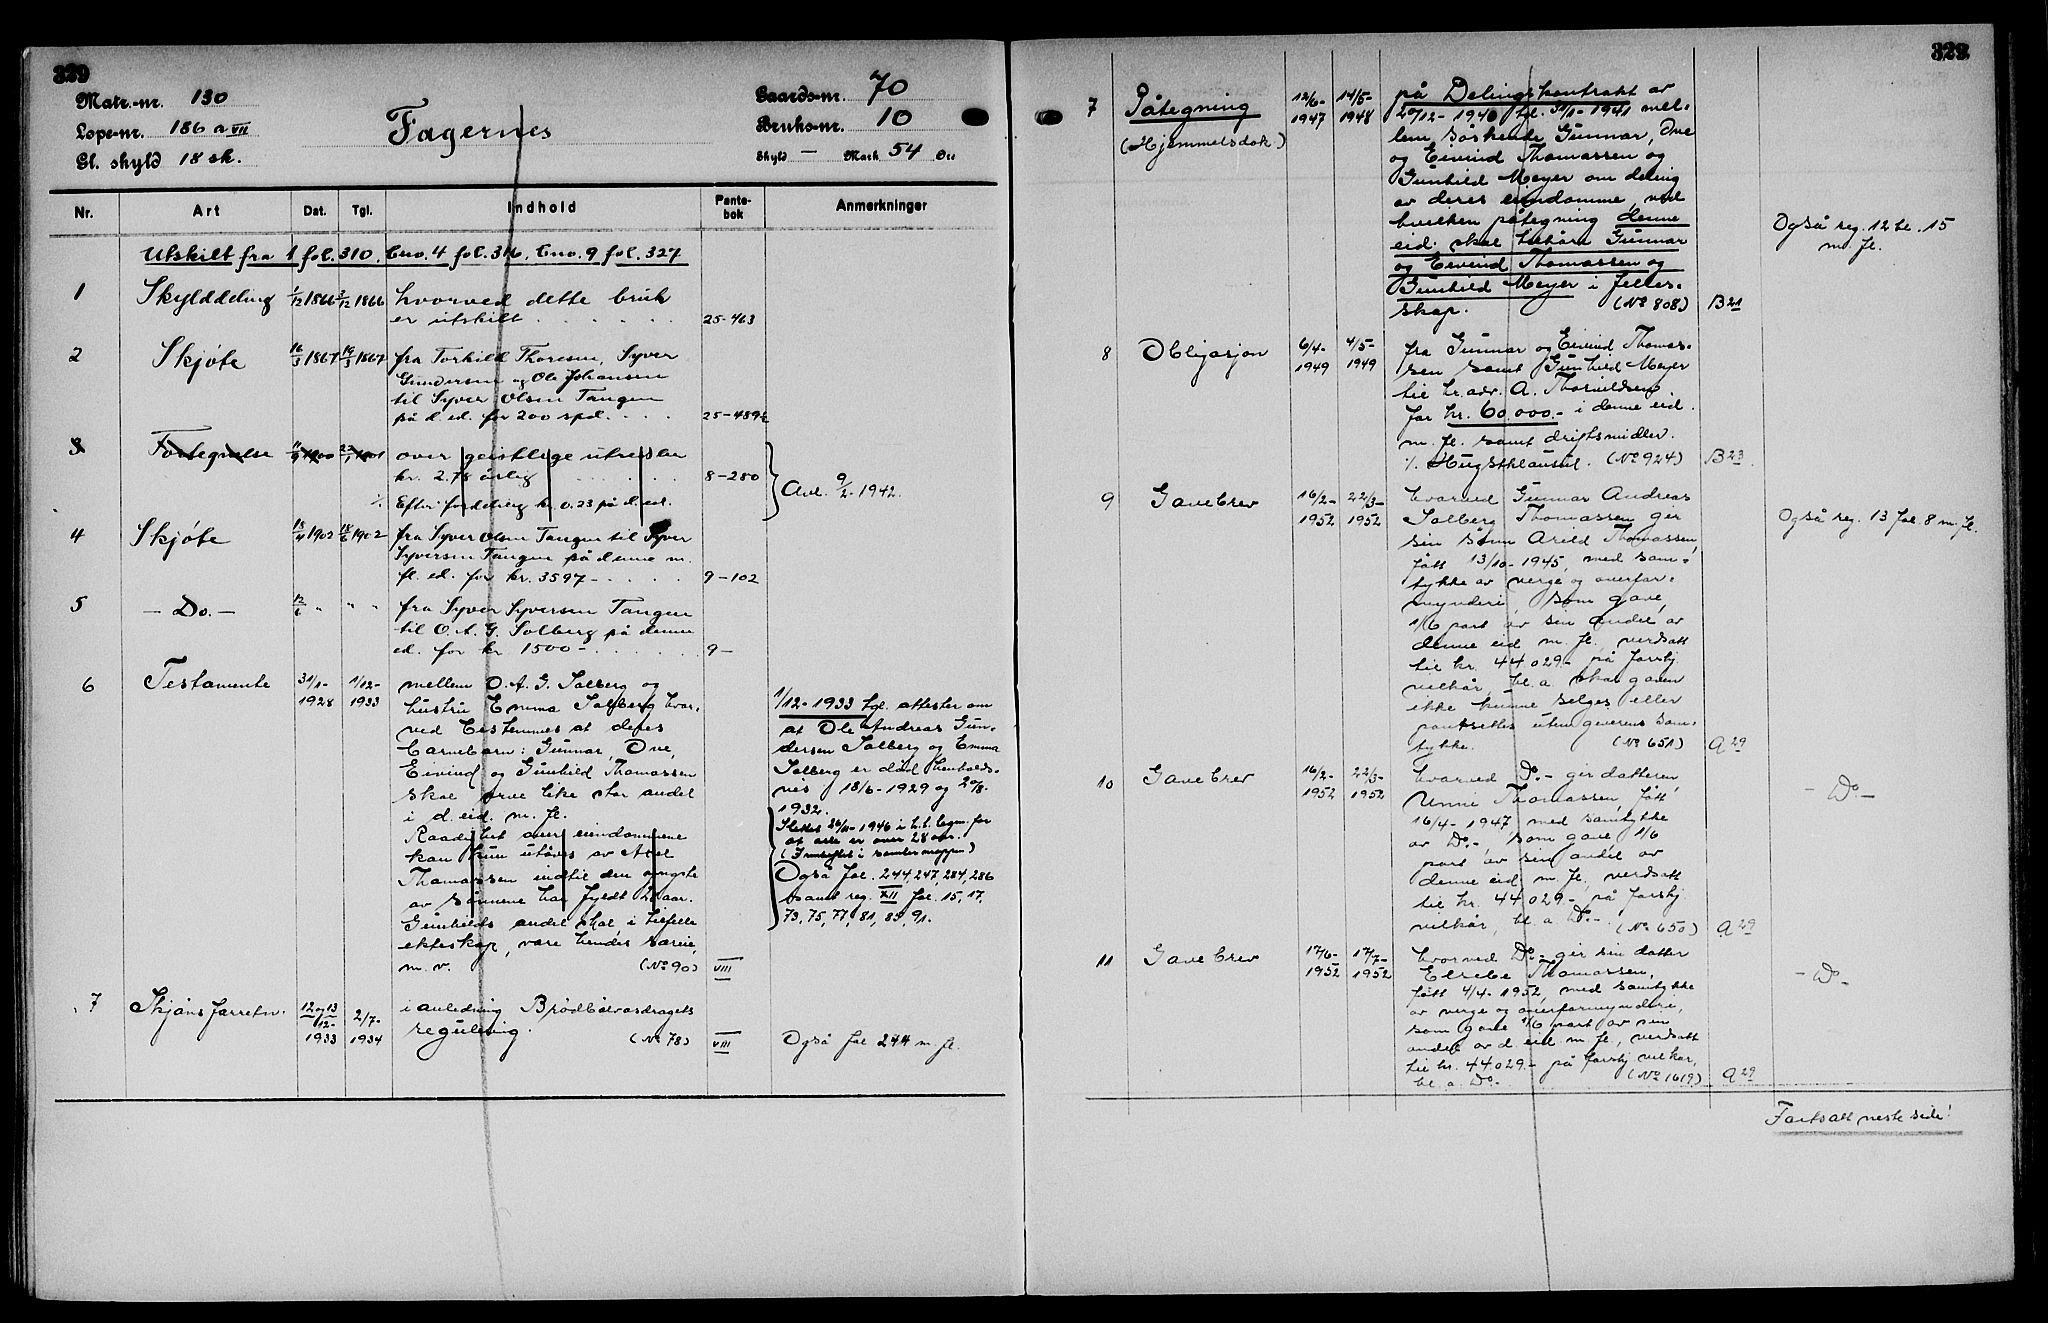 329
Matr.-nr. 130
Løpe-nr. 186 a VII
Gl. skyld 18 sk.
Fagernes
Gaards-nr. 70
Bruks-nr. 10
Skyld — Mark 54 Øre
Nr. Art Dat. Tgl. Indhold Pante-bok Anmerkninger
Utskilt fra 1 fol. 310, bno. 4 fol. 316, bno. 9 fol. 327
1 Skylddeling 1/12 1866 3/12 1866 hvorved dette bruk
er utskilt . . . . . . 25-463
2 Skjøte 16/3 1867 19/3 1867 fra Torkild Thoresen, Syver
Gundersen og Ole Johansen
til Syver Olsen Tangen
på d. ed. for 200 spd. . . . 25-489b
3 Fortegnelse 11/9 1900 23/1 1901 over geistlige utredsler
kr. 2.78 årlig . . . . . 8-280
Avl. 9/2-1942.
./. Efter fordeling kr. 0.23 på d. ed.
4 Skjøte 18/4 1902 18/6 1902 fra Syver Olsen Tangen til Syver
Syversen Tangen på denne m.
fl. ed. for kr. 3597- . . . . 9-102
5 - Do. - 12/6 " " " fra Syver Syversen Tangen
til O. A. G. Solberg på denne
ed. for kr 1500- . . . . . 9-
6 Testamente 31/1-1928 1/12-1933 mellem O. A. G. Solberg og
hustru Emma Solberg hvor-
ved bestemmes at deres
barnebarn: Gunnar, Ove,
Eivind og Gunhild Thomassen
skal arve like stor andel
i d. eid. m. fl.
Raadighet over eiendommene
kan kun utøves av Axel
Thomassen indtil den yngste
av sønnene har fyldt 28 aar.
Gunhilds andel skal, i tilfelle
ekteskap, være hendes særeie,
m. v. (No 90) VIII
1/12-1933 tgl. attester om
at Ole Andreas Gun-
dersen Solberg og Emma
Solberg er død henholds-
vis 18/6-1929 og 20/8-
1932.
Slettet 26/11-1946 i h.t. begm. for
at alle er over 28 aar.
(Innheftet i samlermappen)
Også fol. 244, 247, 284, 286
samt reg. XII fol. 15, 17,
73, 75, 77, 81, 89, 91.
7 Skjønsforretn. 12 og 13/12-1933 2/7-1934 i anledning Brødbølvasdragets
regulering. (No 78) VIII Også fol 244 m. fl.
329
7 Påtegning 12/6-1947 14/5-1948 på Delingskontrakt av
(Hjemmelsdok.) 20/12-1940 tgl. 31/1-1941 mel-
lem søskende Gunnar, Ove
og Eivind Thomassen og
Gunhild Meyer om deling
av deres eiendomme, ved
hvilken påtegning denne
eid. skal tilhøre Gunnar
og Eivind Thomassen og
Gunhild Meyer i felles-
skap. (No 808) B 21
Også reg. 12 bl. 15
m. fl.
8 Obligasjon 6/4-1949 4/5-1949 fra Gunnar og Eivind Thomas-
sen samt Gunhild Meyer
til hr. adv. A. Thorvildsen
for kr. 60,000.- i denne eid.
m. fl. samt driftsmidler.
./. Hugstklausul. (No 924) B 23
9 Gavebrev 16/2-1952 22/3-1952 hvorved Gunnar Andreas
Solberg Thomassen gir
sin sønn Arild Thomassen,
født 13/10-1945, med sam-
tykke av verge og overfor-
mynderi, som gave,
1/6 part av sin andel av
denne eid m. fl., verdsatt
til kr. 44 029.- på forskj.
vilkår, bl. a. skal gaven
ikke kunne selges eller
pantsettes uten giverens sam-
tykke. (No 651) A 29
Også reg. 13 fol. 8 m. fl.
10 Gavebrev 16/2-1952 22/3-1952 hvorved Do.- gir datteren
Unni Thomassen, født
16/4-1947, med samtykke
av Do.-, som gave 1/6
part av sin andel av
denne eid. m. fl., verdsatt
til kr. 44 029.- på forskj.
vilkår, bl. a. Do.-. (No 650) A 29
- Do -
11 Gavebrev 17/6-1952 17/7-1952 hvorved Do.- gir sin datter
Elsebe Thomassen,
født 4/4-1952, med samtykke
av verge og overformynderi,
som gave 1/6 part av sin
andel av d. eid m. fl., verdsatt
til kr. 44 029.- på forskj. vilkår,
bl. a. Do.- (No 1619) A 29
- Do -
Fortsatt neste side!